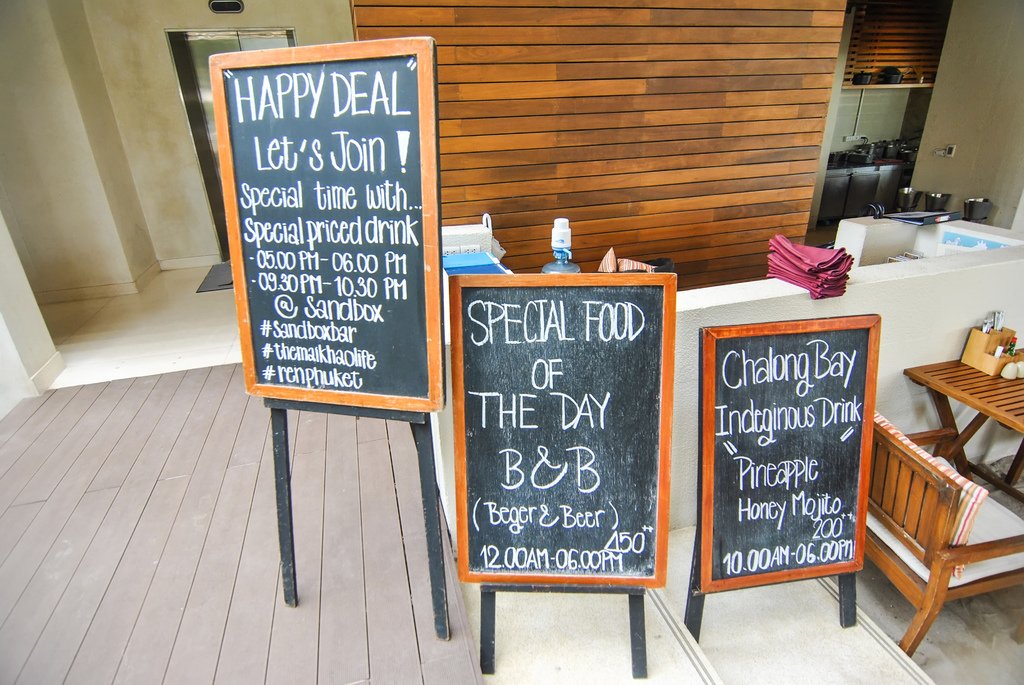 "HAPPY DEAL"
Let's Join !
Special time with...
Special priced drink
- 05.00 PM - 06.00 PM
- 09.30 PM - 10.30 PM
@ Sandbox
#sandboxbar
#themaikhaolife
#renphuket
SPECIAL FOOD
OF
THE DAY
B & B
(Beger & Beer)
450++
12.00AM-06.00PM
Chalong Bay
Indeginous Drink
"Pineapple"
Honey Mojito
200++
10.00AM-06.00PM